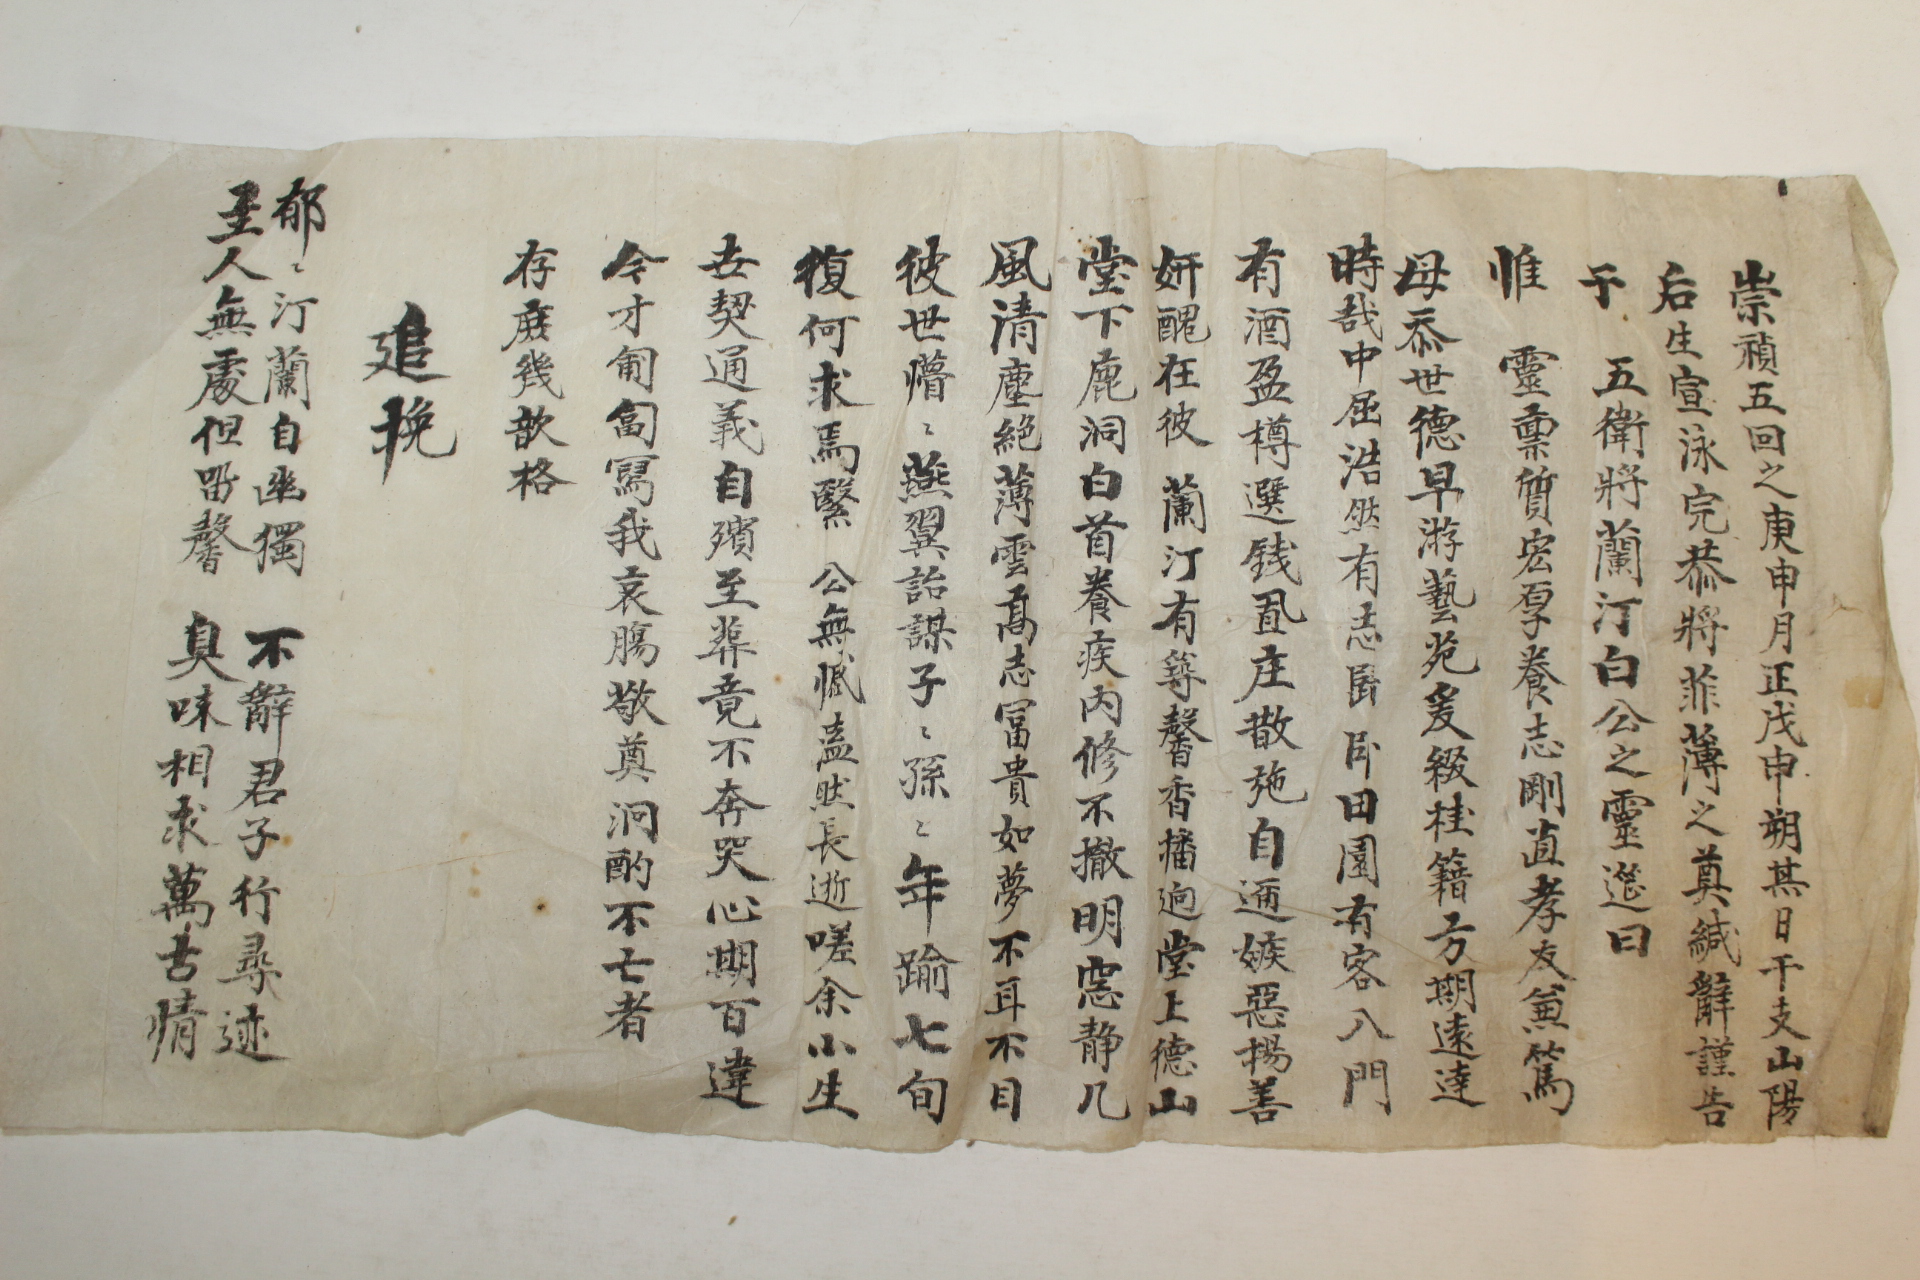 崇禎五回之庚申月正戊申朔其日干支山陽
后生宣泳完恭將菲薄之奠緘辭謹告
于　五衛將蘭汀白公之靈筵曰
惟　靈稟質宏厚養志剛直孝友兼篤
母忝世德早游藝苑爰綴桂籍方期遠達
時哉中屈浩然有志歸臥田園有客入門
有酒盈樽選錢置庄散施自邇嫉惡揚善
妍醜在彼　蘭汀有築馨香播逈堂上德山
堂下鹿洞白首養疾內修不撤明窓静几
風清塵絕薄雲高志冨貴如夢不耳不目
彼世懵〻燕翼詒謀子〻孫〻年踰七旬
復何求焉緊　公無憾溘然長逝嗟余小生
世契通義自殯至葬竟不奔哭心期百違
今才匍匐寫我哀膓敬奠泂酌不亡者
存庶幾歆格
追挽
郁〻汀蘭自幽獨　不辭君子行尋迹
主人無處但留馨　臭味相求萬古情